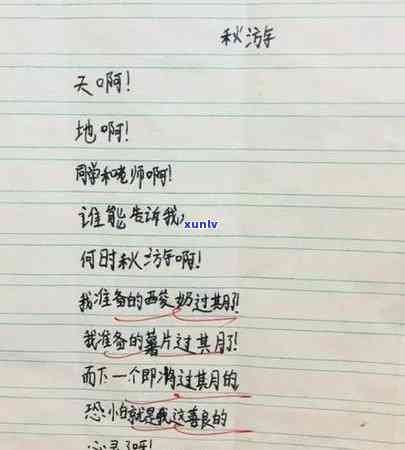 秋游
天啊!
地啊!
同学和老师啊!
谁能告诉我,
xunlv
何时秋游啊!
我准备的酸奶过期了!
我准备的薯片过期了!
而下一个即将过期的
恐怕就是我这善良的
心灵了呀!